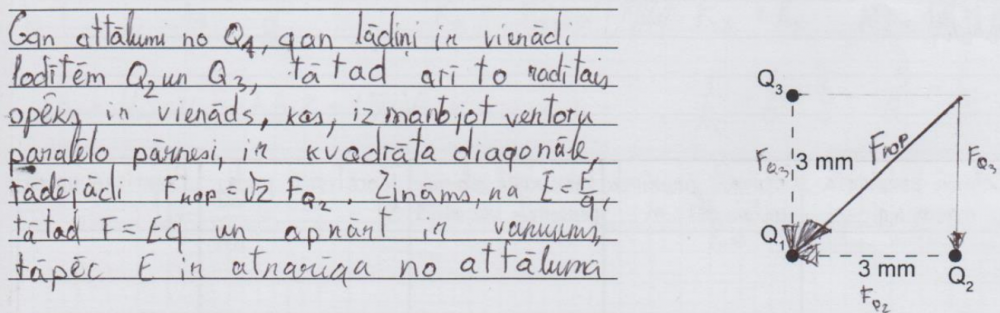 Gan attālumi no Q1, gan lādiņi ir vienādi
lodītēm Q2 un Q3, tātad arī to radītais
spēks ir vienāds, kas, izmantojot vektoru
paralēlo pārnesi, ir kvadrāta diagonāle,
tādējādi Fkop = √2 FQ2. Zināms, ka E = F/q,
tātad F = Eq un apkārt ir vakuums,
tāpēc E ir atkarīga no attāluma
Q3
FQ3 3 mm Fkop FQ3
Q1
3 mm Q2
FQ2